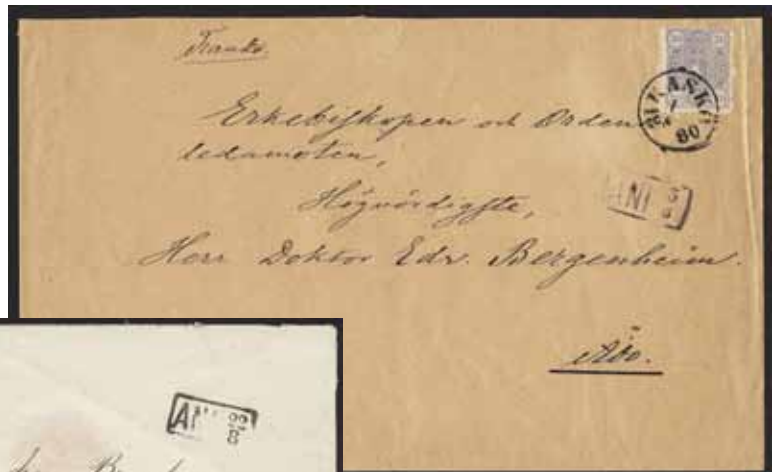 Franko.
Erkebiskopen och Ordens
ledamoten,
Högvördigste,
Herr Doktor Edv. Bergenheim.
Åbo.
80
ANK 3/8
ANK 22/8